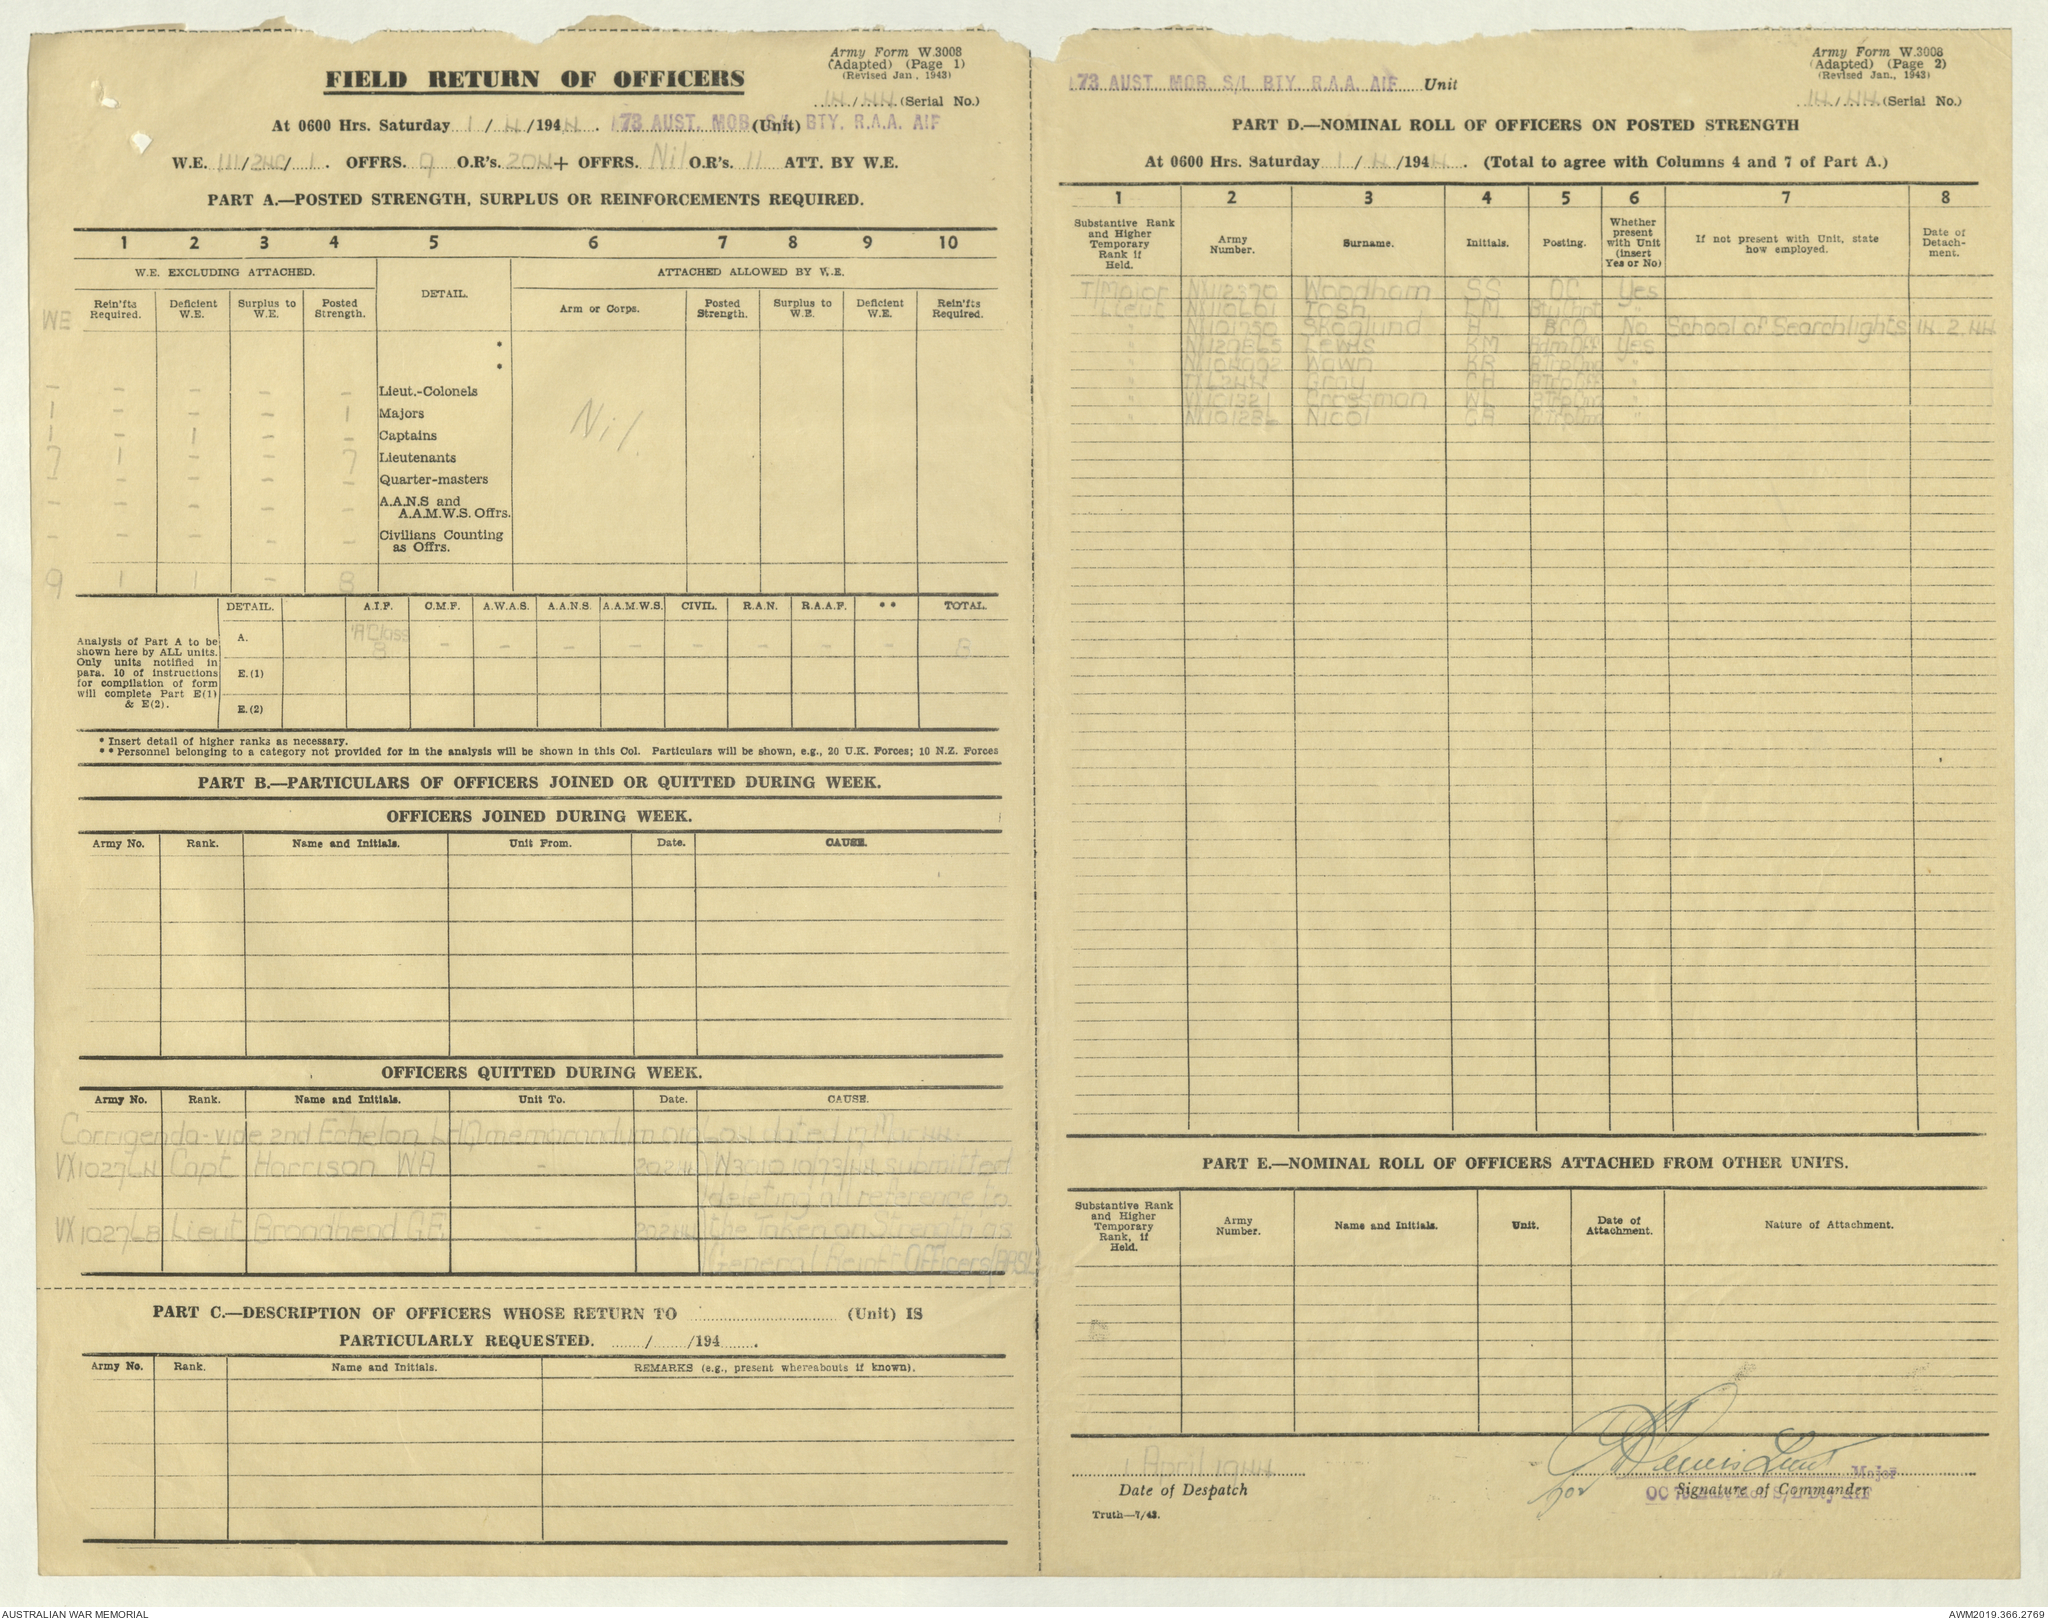 Army Form W.3008
(Adapted) (Page 1)
(Revised Jan., 1943)
FIELD RETURN OF OFFICERS
14/44 (Serial No.)
At 0600 Hrs. Saturday 1/4/1944. 73 AUST. MOB. S/L BTY. R.A.A. AIF (Unit)
W.E. III/240/1. OFFRS. 9 O.R's. 204 + OFFRS. Nil O.R's. 11 ATT. BY W.E.
PART A.—POSTED STRENGTH, SURPLUS OR REINFORCEMENTS REQUIRED.
1 2 3 4 5 6 7 8 9 10
W.E. EXCLUDING ATTACHED. DETAIL. ATTACHED ALLOWED BY W.E.
WE Rein'fts Required. Deficient W.E. Surplus to W.E. Posted Strength. Arm or Corps. Posted Strength. Surplus to W.E. Deficient W.E. Rein'fts Required.
*
*
- - - - - Lieut.-Colonels
1 - - - 1 Majors Nil
1 - 1 - - Captains
7 1 - - 7 Lieutenants
- - - - - Quarter-masters
- - - - - A.A.N.S and A.A.M.W.S. Offrs.
- - - - - Civilians Counting as Offrs.
9 1 1 - 8
DETAIL. A.I.F. C.M.F. A.W.A.S. A.A.N.S. A.A.M.W.S. CIVIL. R.A.N. R.A.A.F. ** TOTAL.
Analysis of Part A to be shown here by ALL units. Only units notified in para. 10 of instructions for compilation of form will complete Part E(1) & E(2).
A. 'A' Class 8 - - - - - - - - 8
E.(1)
E.(2)
* Insert detail of higher ranks as necessary.
** Personnel belonging to a category not provided for in the analysis will be shown in this Col. Particulars will be shown, e.g., 20 U.K. Forces; 10 N.Z. Forces
PART B.—PARTICULARS OF OFFICERS JOINED OR QUITTED DURING WEEK.
OFFICERS JOINED DURING WEEK.
Army No. Rank. Name and Initials. Unit From. Date. CAUSE.
OFFICERS QUITTED DURING WEEK.
Army No. Rank. Name and Initials. Unit To. Date. CAUSE.
Corrigenda-vide 2nd Echelon LHQ memorandum dated 17 Mar 44
VX102764 Capt Harrison WA - 20244 submitted
deleting all reference to
VX102768 Lieut Broadhend GE - 20244 the Taken on Strength as
General Reinft Officers
PART C.—DESCRIPTION OF OFFICERS WHOSE RETURN TO (Unit) IS
PARTICULARLY REQUESTED. / /194 .
Army No. Rank. Name and Initials. REMARKS (e.g., present whereabouts if known).
Army Form W.3008
(Adapted) (Page 2)
(Revised Jan., 1943)
73 AUST. MOB. S/L BTY. R.A.A. AIF Unit
14/44 (Serial No.)
PART D.—NOMINAL ROLL OF OFFICERS ON POSTED STRENGTH
At 0600 Hrs. Saturday 1/4/1944. (Total to agree with Columns 4 and 7 of Part A.)
1 2 3 4 5 6 7 8
Substantive Rank and Higher Temporary Rank if Held. Army Number. Surname. Initials. Posting. Whether present with Unit (insert Yes or No) If not present with Unit, state how employed. Date of Detachment.
T/Major NX112370 Woodham SS OC Yes
Lieut Tosh "
" NX101750 Skoglund H BCO No School of Searchlights 14 2 44
" Lewis KM Adm Off Yes
" Wawn "
" Gray "
" VX101321 Crossman WL "
" Nicol "
PART E.—NOMINAL ROLL OF OFFICERS ATTACHED FROM OTHER UNITS.
Substantive Rank and Higher Temporary Rank, if Held. Army Number. Name and Initials. Unit. Date of Attachment. Nature of Attachment.
1 April 1944
Date of Despatch
for Lewis Lieut
Major
Signature of Commander
OC 73 Aust Mob S/L Bty AIF
Truth—7/43.
AUSTRALIAN WAR MEMORIAL
AWM2019.366.2769